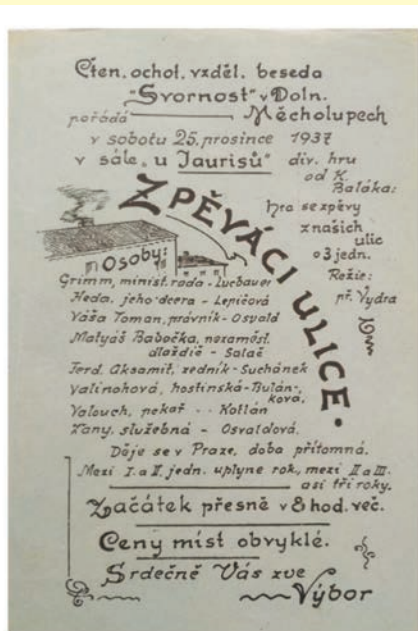 Čten. ochot. vzděl. beseda
"Svornost" v Doln.
pořádá Měcholupech
v sobotu 25. prosince 1937
v sále „u Jaurisů" div. hru
od K.
Baláka:
ZPĚVÁCI ULICE.
hra se zpěvy
z našich
ulic
o 3 jedn.
Režie:
př. Vydra
Osoby:
Grimm, minist. rada - Lucbauer
Heda, jeho dcera - Lepičová
Váša Toman, právník - Osvald
Matyáš Babočka, nezaměst.
dlaždič - Salač
Ferd. Aksamit, zedník - Suchánek
Valinohová, hostinská - Bulán-
ková.
Valouch, pekař - Kotlán
Fany, služebná - Osvaldová.
Děje se v Praze, doba přítomná.
Mezi I. a II. jedn. uplyne rok, mezi II a III.
asi tři roky.
Začátek přesně v 8 hod. več.
Ceny míst obvyklé.
Srdečně Vás zve
Výbor